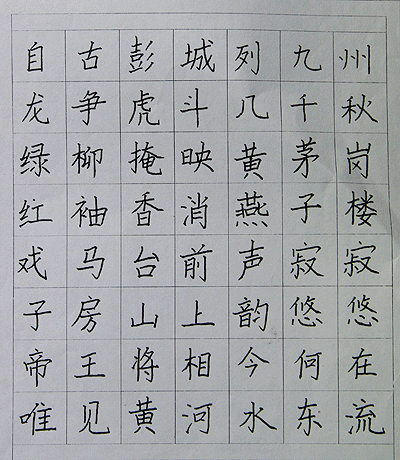 自古彭城列九州
龙争虎斗几千秋
绿柳掩映黄茅岗
红袖香消燕子楼
戏马台前声寂寂
子房山上韵悠悠
帝王将相今何在
唯见黄河水东流